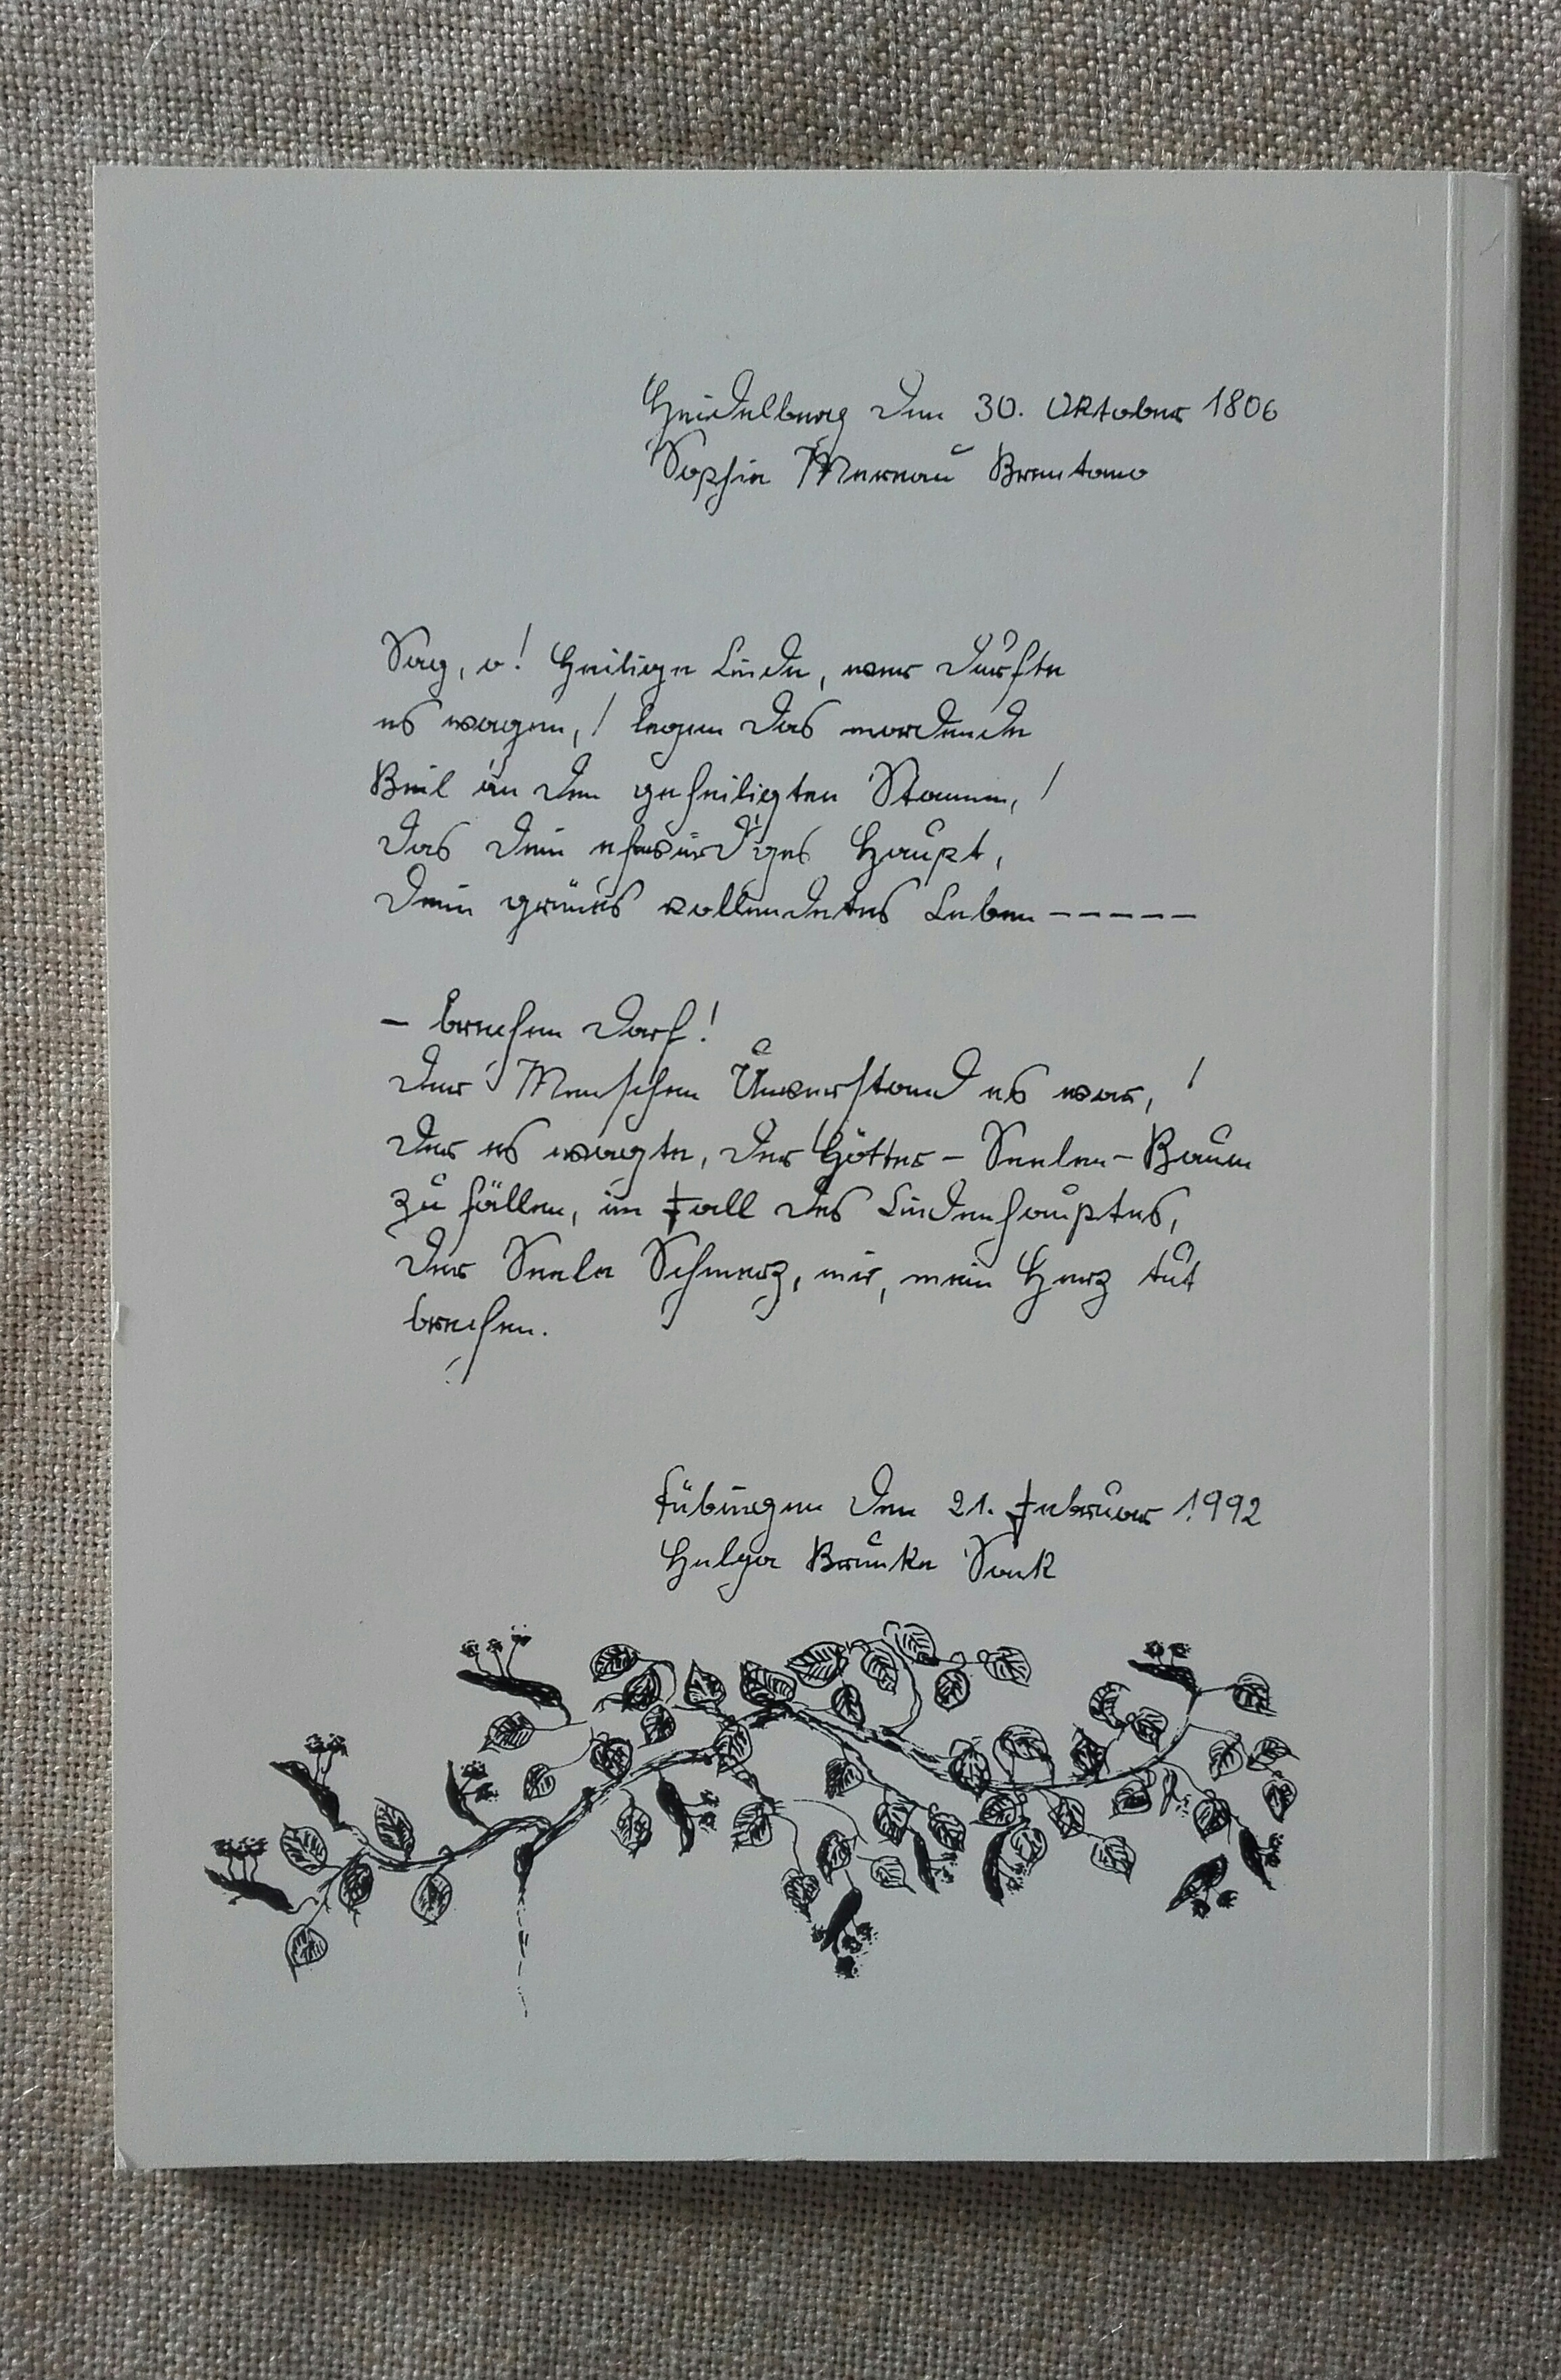 Heidelberg den 30. Oktober 1806
Sophie Mereau Brentano
Sag, o! Heilige Linde, wer dürfte
es wagen,! legen das mordende
Beil an den geheiligten Stamm,!
Das dein ehrwürd'ges Haupt,
Dein grünes vollendetes Leben -----
- brechen darf!
Der Menschen Unverstand es war,!
Der es wagte, der Götter-Seelen-Baum
zu fällen, im Fall des Lindenhauptes,
Der Seele Schmerz, mir, mein Herz tut
brechen.
Tübingen den 21. Februar 1992
Helga Brunke